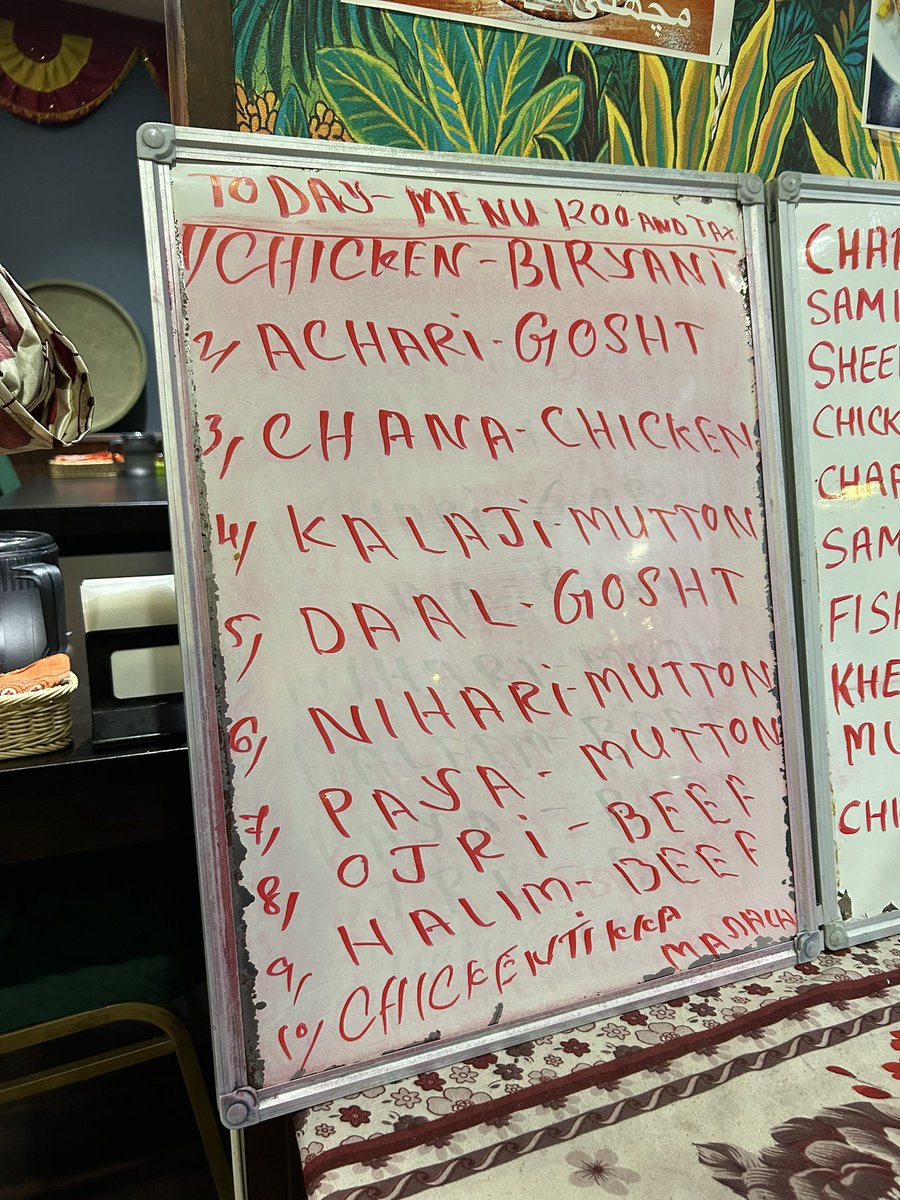 مچھلی
TODAY-MENU 1200 AND TAX
1/ CHICKEN-BIRYANI
2/ ACHARI-GOSHT
3/ CHANA-CHICKEN
4/ KALAJI-MUTTON
5/ DAAL-GOSHT
6/ NIHARI-MUTTON
7/ PAYA-MUTTON
8/ OJRI-BEEF
9/ HALIM-BEEF
10/ CHICKEN TIKKA MASALA
SAM
FISH
CHI